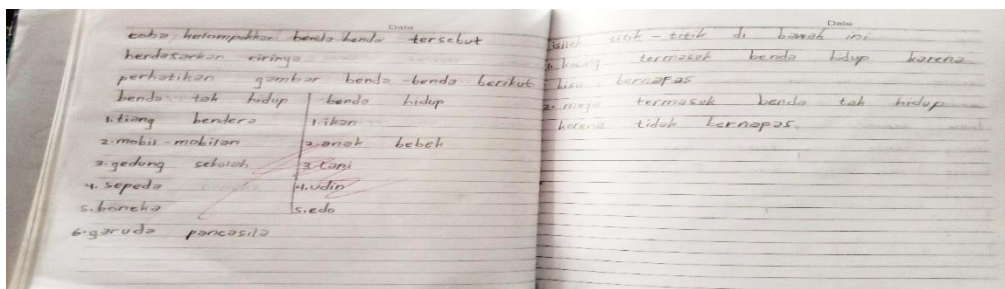 Date
coba kelompokkan benda benda tersebut
berdasarkan cirinya
perhatikan gambar benda-benda berikut
benda tak hidup benda hidup
1. tiang bendera 1. ikan
2. mobil-mobilan 2. anak bebek
3. gedung sekolah 3. Cani
4. sepeda 4. udin
5. boneka 5. edo
6. garuda pancasila
Date
isilah titik-titik di bawah ini
1. kucing termasuk benda hidup karena
bisa bernapas
2. meja termasuk benda tak hidup
karena tidak bernapas